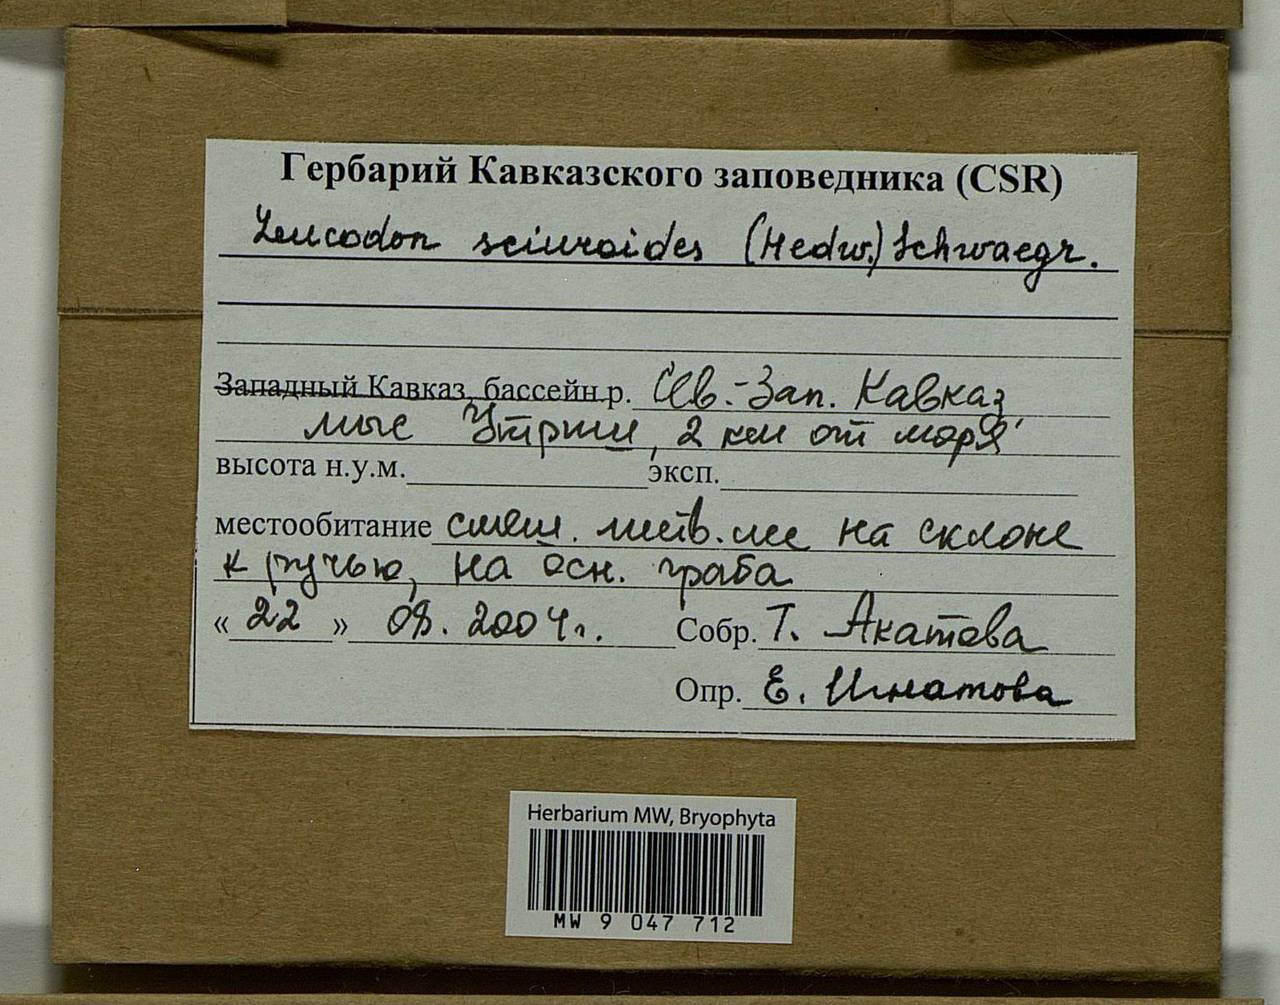 Гербарий Кавказского заповедника (CSR)
Leucodon sciuroides (Hedw.) Schwaegr.
Западный Кавказ, бассейн р. Сев.-Зап. Кавказ,
мыс Утриш, 2 км от моря
высота н.у.м. эксп.
местообитание смеш. листв. лес на склоне
к ручью, на осн. граба
« 22 » 08. 2004 г. Собр. Т. Акатова
Опр. Е. Игнатова
Herbarium MW, Bryophyta
MW 9 047 712